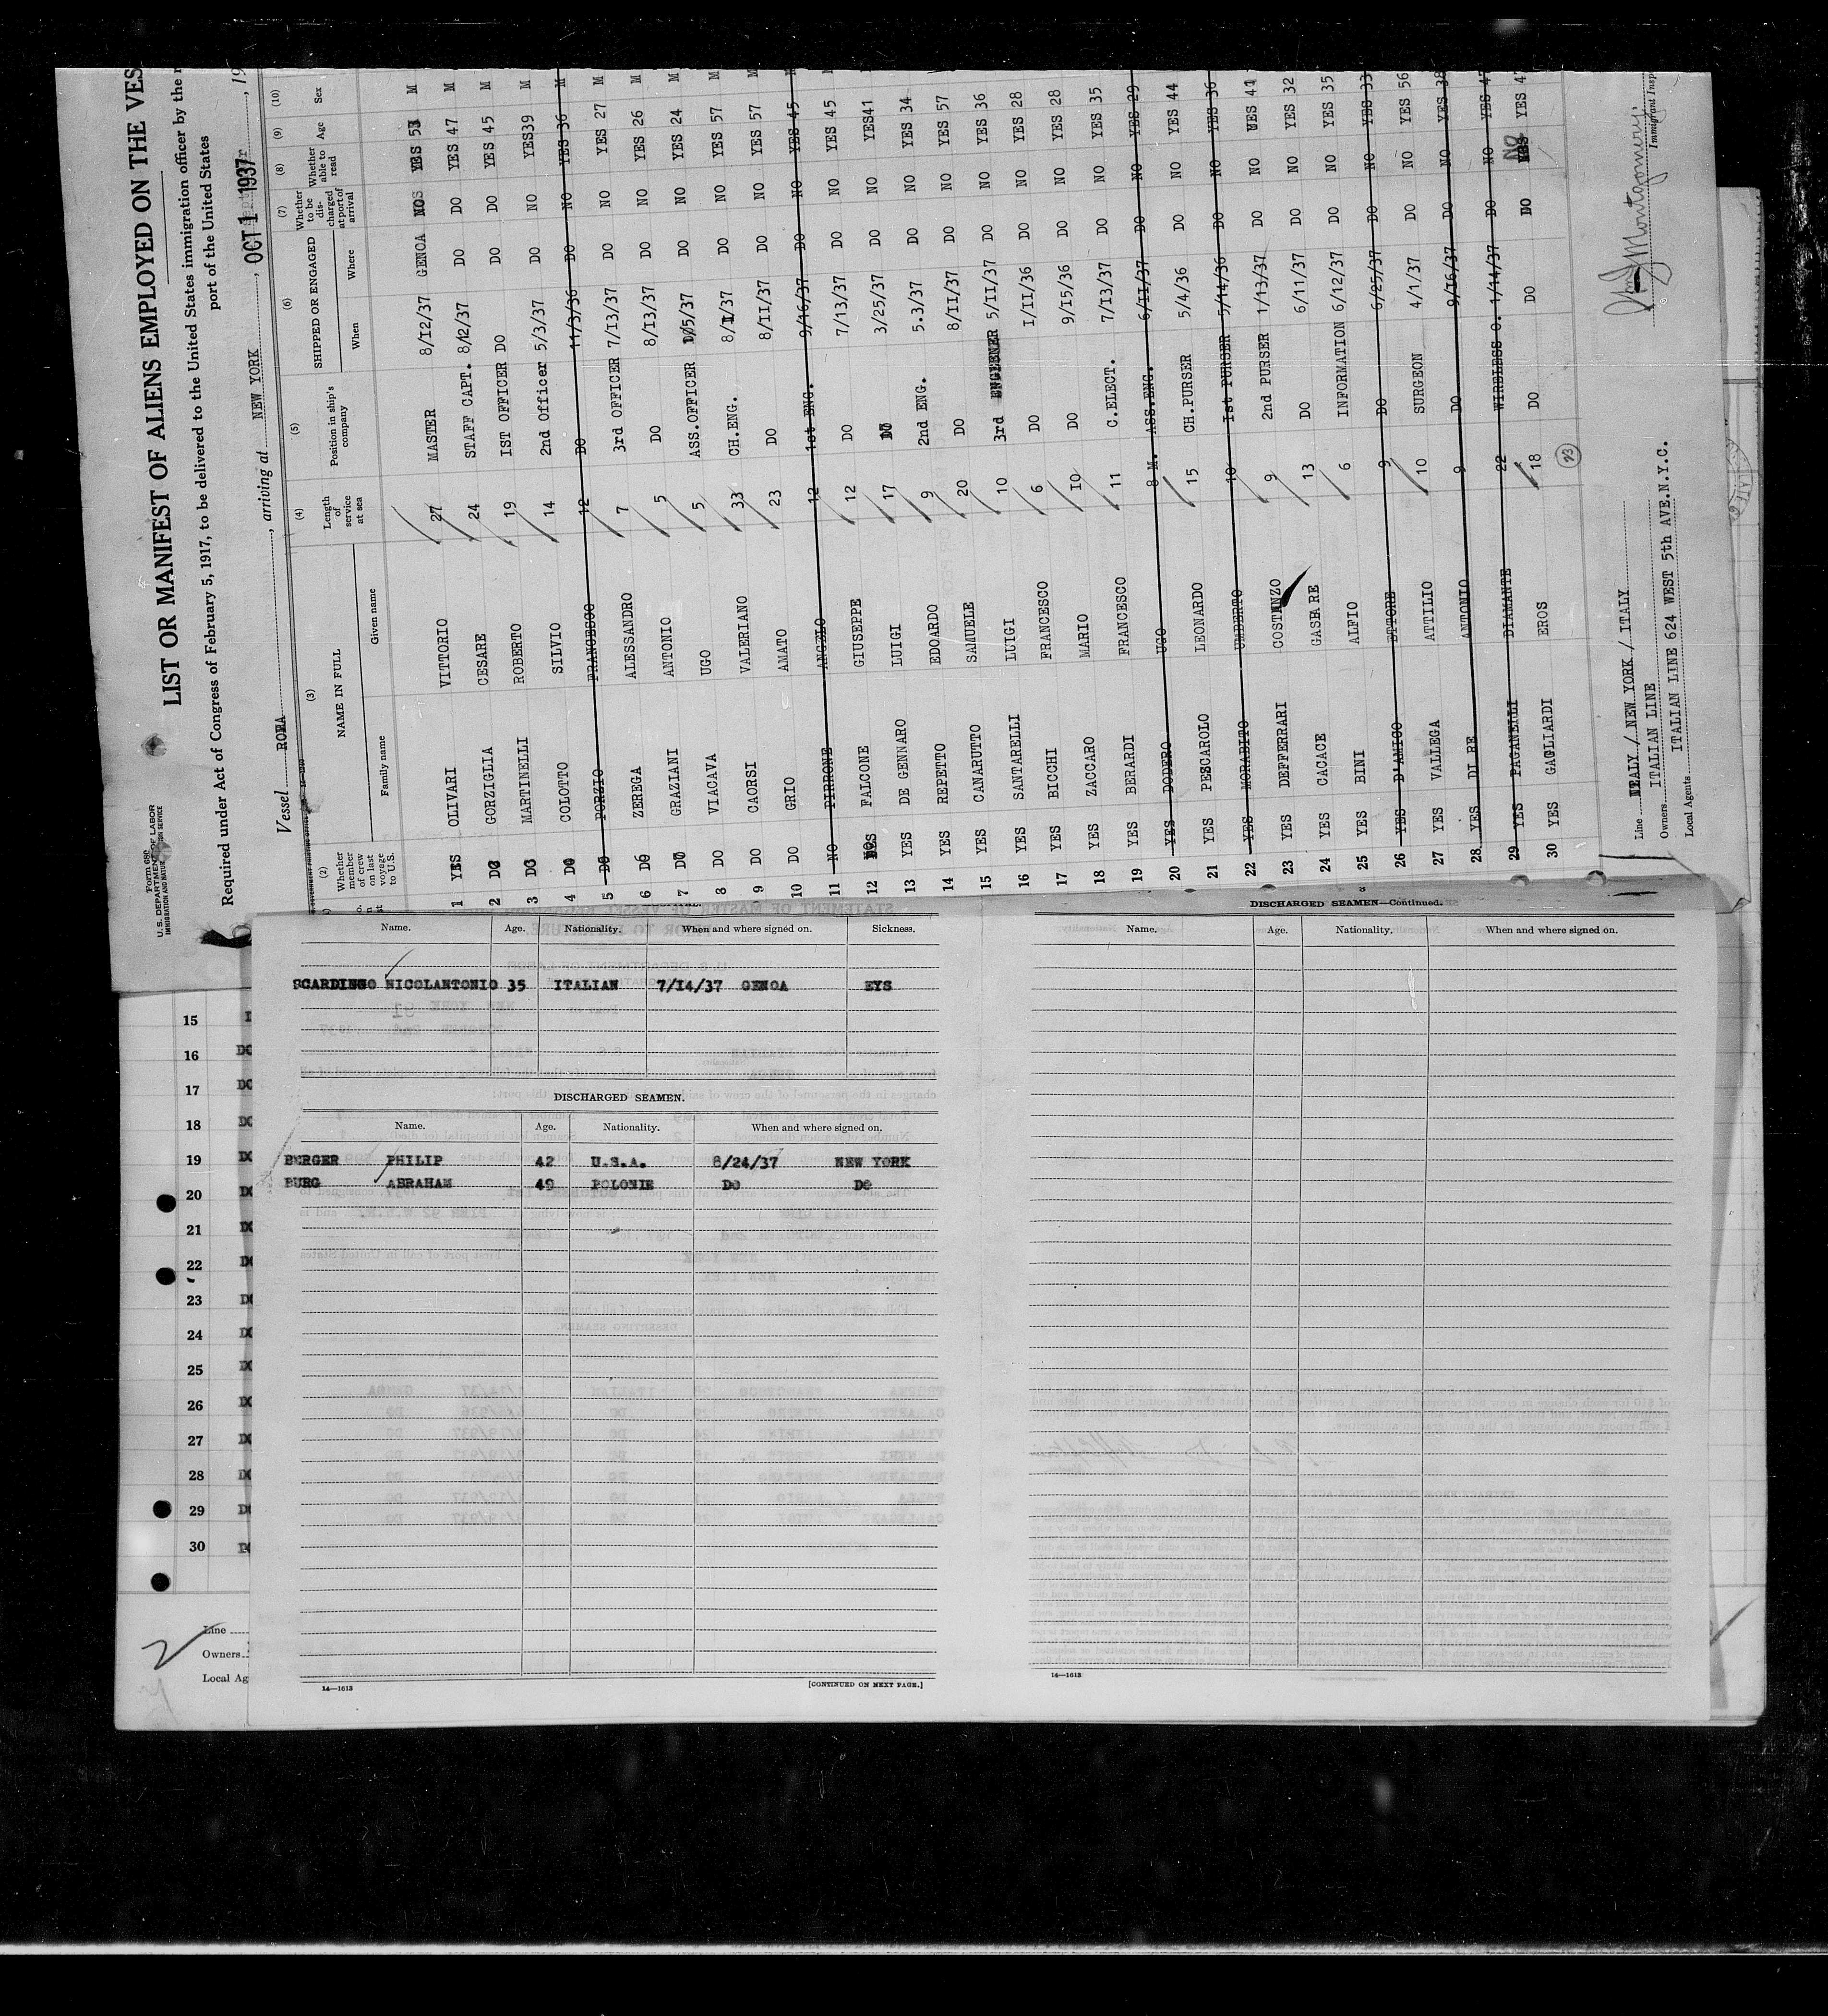 Form 680
U.S. DEPARTMENT OF LABOR
IMMIGRATION AND NATURALIZATION SERVICE
LIST OR MANIFEST OF ALIENS EMPLOYED ON THE VES
Required under Act of Congress of February 5, 1917, to be delivered to the United States immigration officer by the
port of the United States
Vessel ROMA, arriving at NEW YORK, OCT 1 1937, 19
(2) (3) (4) (5) (6) (7) (8) (9) (10)
Whether member of crew on last voyage to U.S. NAME IN FULL Family name Given name Length of service at sea Position in ship's company SHIPPED OR ENGAGED When Where Whether to be discharged at port of arrival Whether able to read Age Sex
1 YES OLIVARI VITTORIO 27 MASTER 8/12/37 GENOA NO YES 53 M
2 DO GORZIGLIA CESARE 24 STAFF CAPT. 8/12/37 DO DO YES 47 M
3 DO MARTINELLI ROBERTO 19 IST OFFICER DO DO DO YES 45 M
4 DO COLOTTO SILVIO 14 2nd Officer 5/3/37 DO NO YES39 M
5 DO PORZIO FRANCESCO 12 DO 11/3/36 DO NO YES 36 M
6 DO ZEREGA ALESSANDRO 7 3rd OFFICER 7/13/37 DO NO YES 27 M
7 DO GRAZIANI ANTONIO 5 DO 8/13/37 DO NO YES 26 M
8 DO VIACAVA UGO 5 ASS.OFFICER 5/37 DO NO YES 24 M
9 DO CAORSI VALERIANO 33 CH.ENG. 8/11/37 DO NO YES 57 M
10 DO GRIO AMATO 23 DO 8/11/37 DO NO YES 57 M
11 NO PIRRONE ANGELO 12 1st ENG. 9/16/37 DO NO YES 45 M
12 YES FALCONE GIUSEPPE 12 DO 7/13/37 DO NO YES 45
13 YES DE GENNARO LUIGI 17 DO 3/25/37 DO NO YES41
14 YES REPETTO EDOARDO 9 2nd ENG. 5.3/37 DO NO YES 34
15 YES CANARUTTO SAMUELE 20 DO 8/11/37 DO NO YES 57
16 YES SANTARELLI LUIGI 10 3rd ENGINEER 5/11/37 DO NO YES 36
17 YES BICCHI FRANCESCO 6 DO 1/11/36 DO NO YES 28
18 YES ZACCARO MARIO 10 DO 9/15/36 DO NO YES 28
19 YES BERARDI FRANCESCO 11 C.ELECT. 7/13/37 DO NO YES 35
20 YES DODERO UGO 8 M. ASS.ENG. 6/11/37 DO NO YES 29
21 YES PESCAROLO LEONARDO 15 CH.PURSER 5/4/36 DO NO YES 44
22 YES MORABITO UMBERTO 10 Ist PURSER 5/14/36 DO NO YES 36
23 YES DEFFERRARI COSTANZO 9 2nd PURSER 1/13/37 DO NO YES 41
24 YES CACACE GASPARE 13 DO 6/11/37 DO NO YES 32
25 YES BINI ALFIO 6 INFORMATION 6/12/37 DO NO YES 35
26 YES D'AMICO ETTORE 9 DO 6/25/37 DO NO YES 33
27 YES VALLEGA ATTILIO 10 SURGEON 4/1/37 DO NO YES 56
28 YES DI RE ANTONIO 9 DO 9/16/37 DO NO YES 38
29 YES PAGANELLI DIAMANTE 22 WIRELESS O. 1/14/37 DO NO YES 47
30 YES GAGLIARDI EROS 18 DO DO DO NO YES 4
23
Line ITALY / NEW YORK / ITALY
Owners ITALIAN LINE
Local Agents ITALIAN LINE 624 WEST 5th AVE.N.Y.C.
Montgomery
Immigrant Insp
Name. Age. Nationality. When and where signed on. Sickness.
SCARDINGO NICOLANTONIO 35 ITALIAN 7/14/37 GENOA EYS
DISCHARGED SEAMEN.
Name. Age. Nationality. When and where signed on.
BERGER PHILIP 42 U.S.A. 8/24/37 NEW YORK
BURG ABRAHAM 49 POLONIE DO DO
14—1613
[CONTINUED ON NEXT PAGE.]
DISCHARGED SEAMEN—Continued.
Name. Age. Nationality. When and where signed on.
14—1613
15
16 DO
17 DO
18 DO
19 DO
20 DO
21 DO
22 DO
23 DO
24 DO
25 DO
26 DO
27 DO
28 DO
29 DO
30 DO
Line
Owners
Local Ag
2